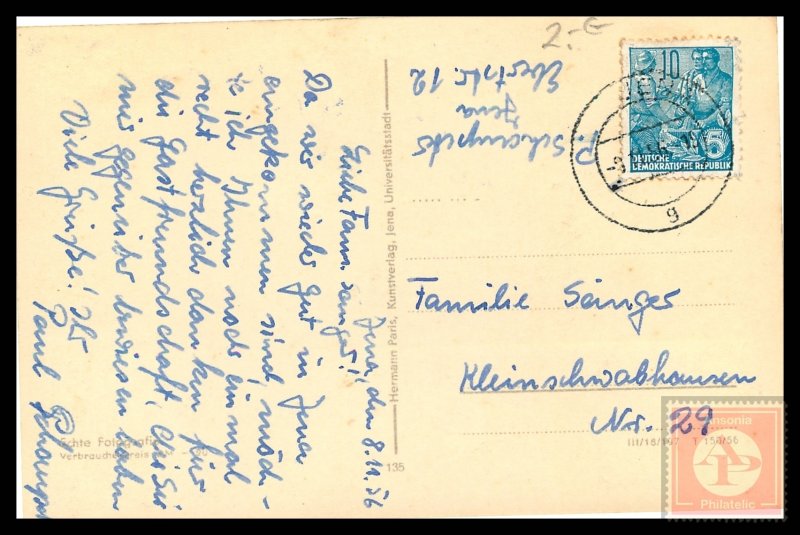 Jena, den 8.11.56
Liebe Fam. Sänger!
Da wir wieder gut in Jena
eingekommen sind, möch-
te ich Ihnen noch einmal
recht herzlich danken für
die Gastfreundschaft, die Sie
mir gegenüber erwiesen haben
Viele Grüße! Ihr
Paul
Echte Fotografie
Verbraucherpreis DM
135
Hermann Paris, Kunstverlag, Jena, Universitätsstadt
2.-€
P.
Jena
Ebertstr. 12
10
5
DEUTSCHE
DEMOKRATISCHE REPUBLIK
JENA
g
Familie Sänger
Kleinschwabhausen
Nr. 29
III/18/197 T 150/56
Ansonia
AP
Philatelic